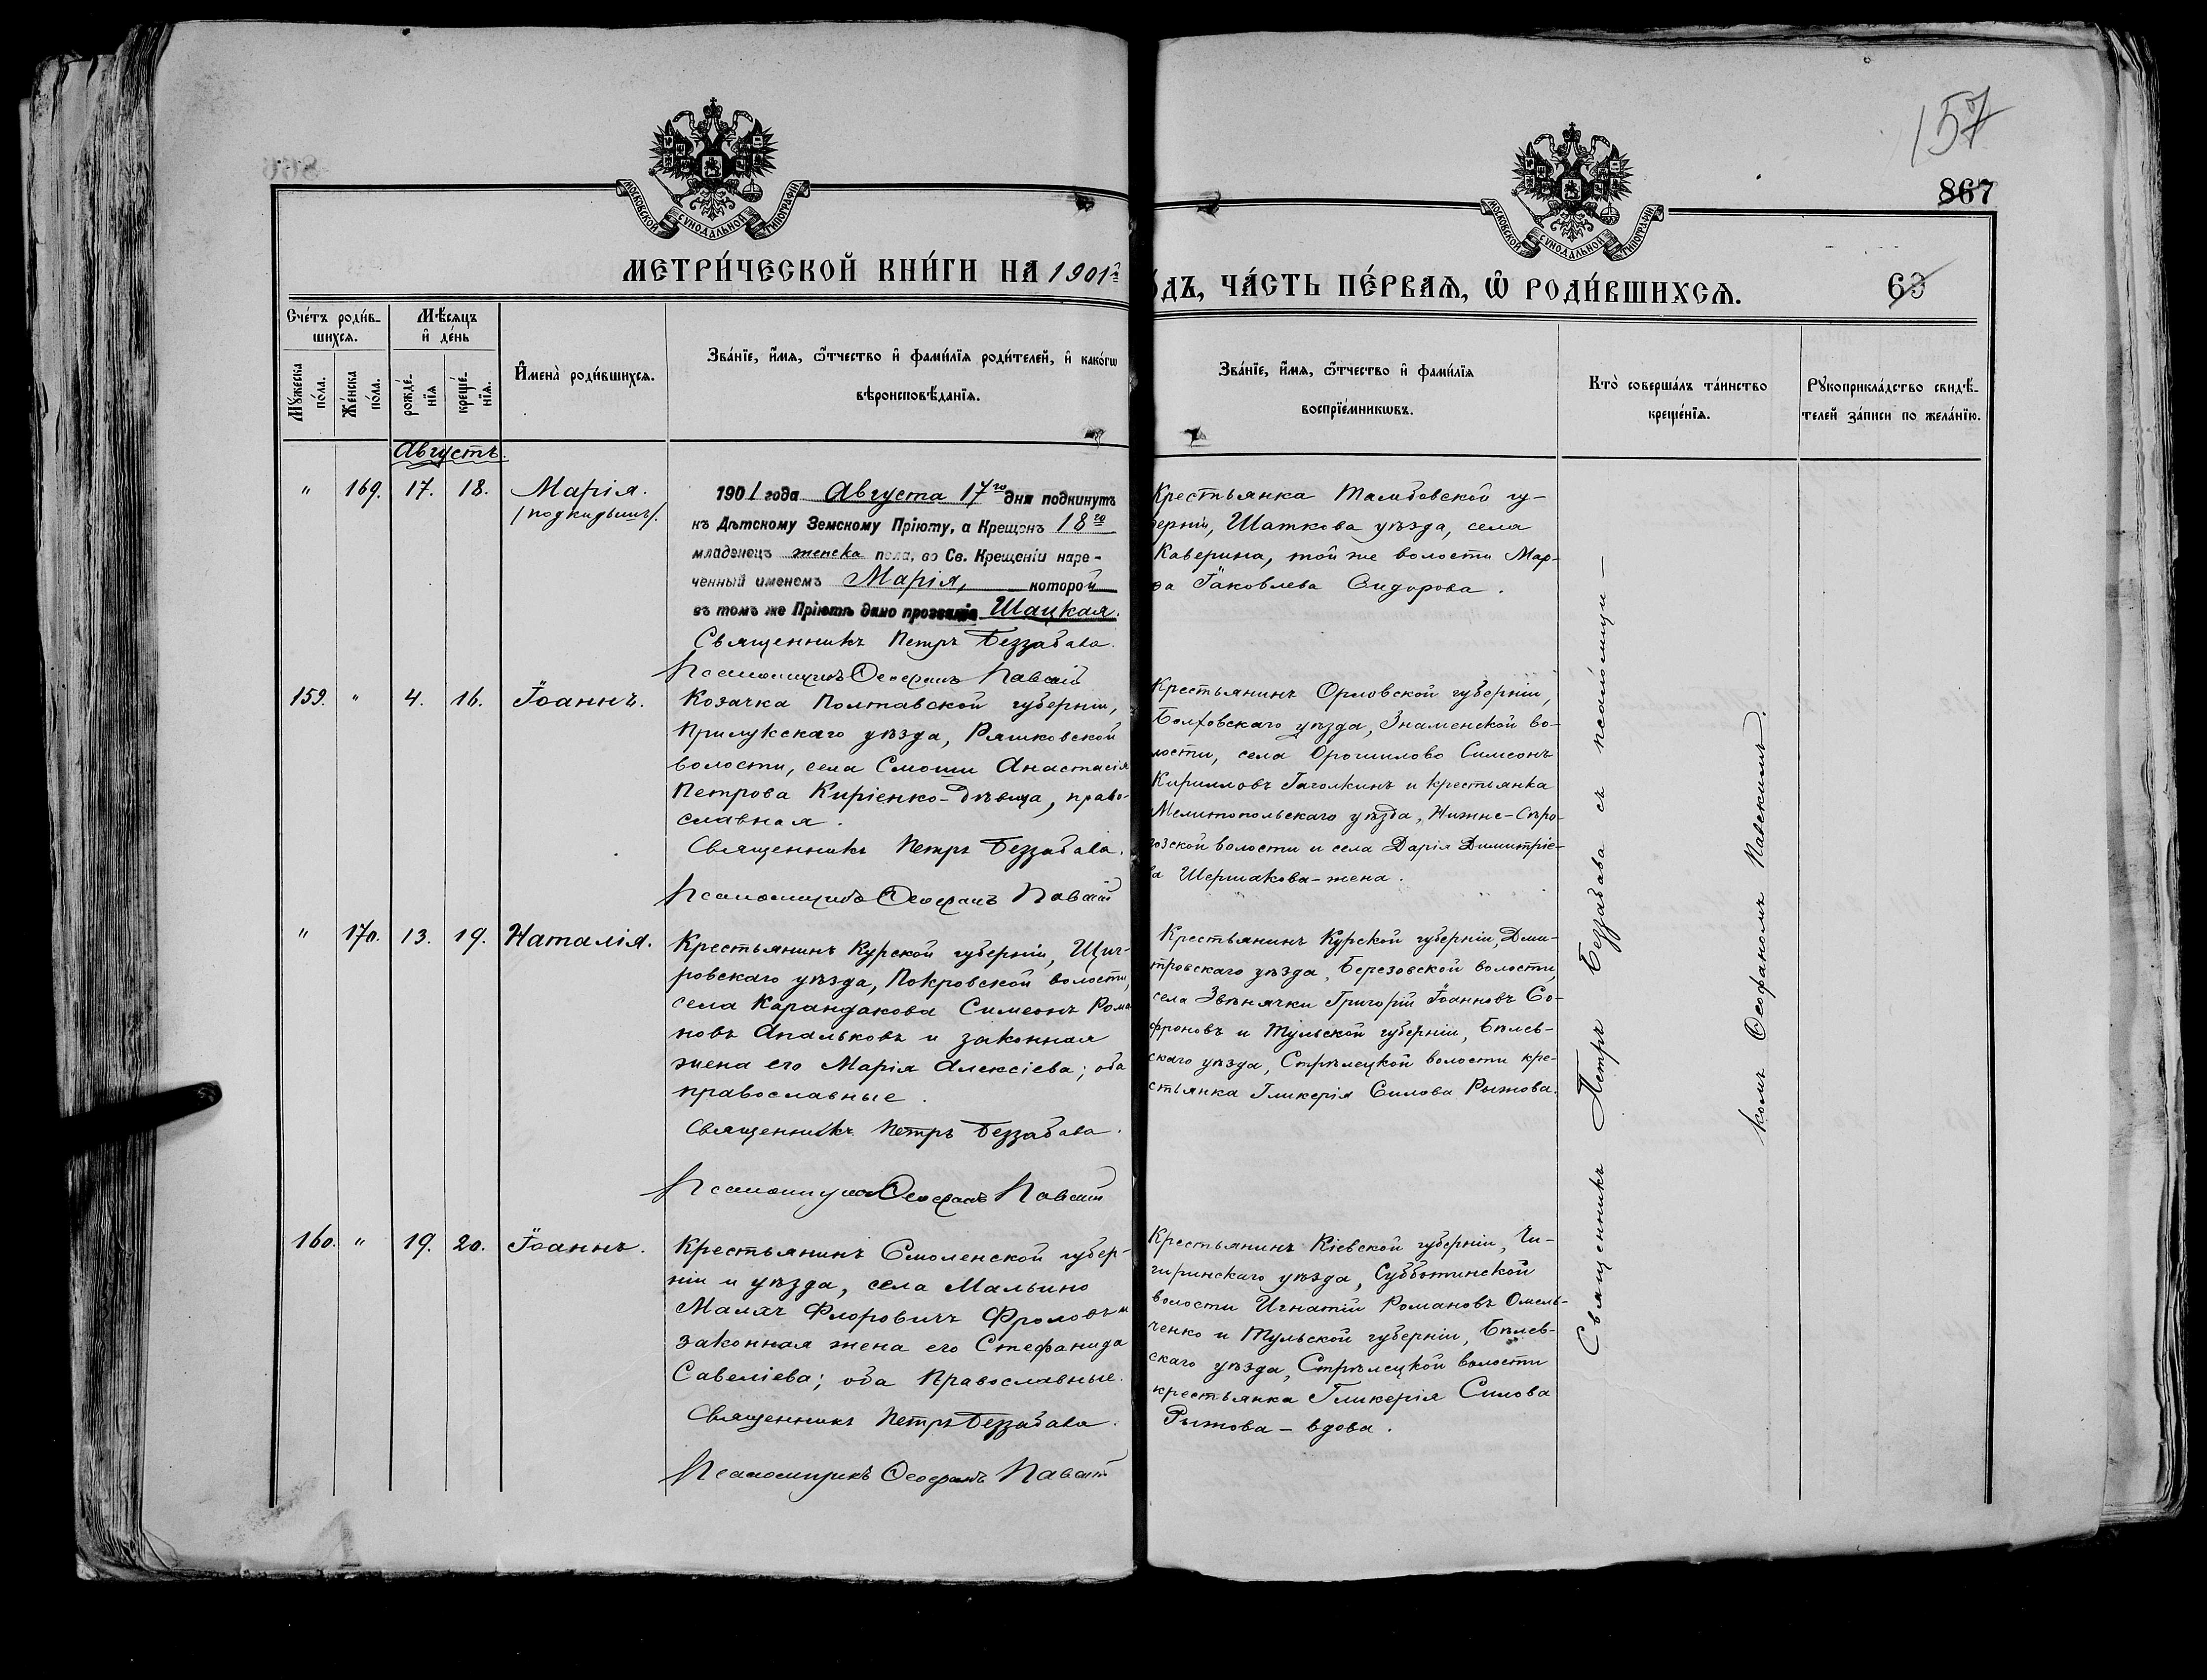 157
867
63
МОСКОВСКОЙ СѴНОДАЛЬНОЙ ТИПОГРАФІИ
МОСКОВСКОЙ СѴНОДАЛЬНОЙ ТИПОГРАФІИ
МЕТРИ́ЧЕСКОЙ КНИ́ГИ НА 1901й
ОДЪ, ЧА́СТЬ ПЕ́РВАѦ, Ѽ РОДИ́ВШИХСѦ.
Сче́тъ роди́в-
шихсѧ.
Мѣ́сѧцъ
и҆ де́нь
Мꙋ́жеска по́ла.
Же́нска по́ла.
рожде́-
нїѧ
креще́-
нїѧ.
И҆мена̀ роди́вшихсѧ.
Зва́нїе, и҆́мѧ, ѻ҆́тчество и҆ фами́лїѧ роди́телей, и҆ како́гѡ
вѣроисповѣ́данїѧ.
Зва́нїе, и҆́мѧ, ѻ҆́тчество и҆ фами́лїѧ
воспрїе́мникѡвъ.
Кто̀ соверша́лъ та́инство
креще́нїѧ.
Рꙋкоприкла́дство свидѣ́-
телей за́писи по жела́нїю.
Августъ.
" 169. 17. 18. Марія.
/подкидышъ/.
1901 года Августа 17го дня подкинутъ
къ Дѣтскому Земскому Пріюту, а Крещенъ 18го
младенецъ женска пола, во Св. Крещеніи наре-
ченный именемъ Марія, которой
въ томъ же Пріютѣ дано прозваніе Шацкая.
Священникъ Петръ Беззабава.
Псаломщикъ Ѳеофанъ Павскій
Крестьянка Тамбовской гу-
берніи, Шаткова уѣзда, села
Каверина, той же волости Мар-
ѳа Іаковлева Сидорова.
159. " 4. 16. Іоаннъ.
Козачка Полтавской губерніи,
Прилукскаго уѣзда, Ряшковской
волости, села Смоши Анастасія
Петрова Киріенко-дѣвица, право-
славная.
Священникъ Петръ Беззабава.
Псаломщикъ Ѳеофанъ Павскій
Крестьянинъ Орловской губерніи,
Болховскаго уѣзда, Знаменской во-
лости, села Орошилово Симеонъ
Кирилловъ Гаголкинъ и крестьянка
Мелитопольскаго уѣзда, Нижне-Сѣро-
гозской волости и села Дарія Димитріе-
ва Шершакова-жена.
" 170. 13. 19. Наталія.
Крестьянинъ Курской губерніи, Щиг-
ровскаго уѣзда, Покровской волости,
села Карандакова Симеонъ Рома-
новъ Апальковъ и законная
жена его Марія Алексіева; оба
православные.
Священникъ Петръ Беззабава.
Псаломщикъ Ѳеофанъ Павскій
Крестьянинъ Курской губерніи, Дми-
тровскаго уѣзда, Березовской волости,
села Звѣнячки Григорій Іоанновъ Со-
фроновъ и Тульской губерніи, Бѣлев-
скаго уѣзда, Стрѣлецкой волости кре-
стьянка Гликерія Силова Рыжова.
160. " 19. 20. Іоаннъ.
Крестьянинъ Смоленской губер-
ніи и уѣзда, села Мальино
Малахъ Флоровичъ Фроловъ и
законная жена его Стефанида
Савеліева; оба Православные.
Священникъ Петръ Беззабава.
Псаломщикъ Ѳеофанъ Павскій
Крестьянинъ Кіевской губерніи, Чи-
гиринскаго уѣзда, Субботинской
волости Игнатій Романовъ Омель-
ченко и Тульской губерніи, Бѣлев-
скаго уѣзда, Стрѣлецкой волости
крестьянка Гликерія Силова
Рыжова - вдова.
Священникъ Петръ Беззабава съ псаломщи-
комъ Ѳеофаномъ Павскимъ.